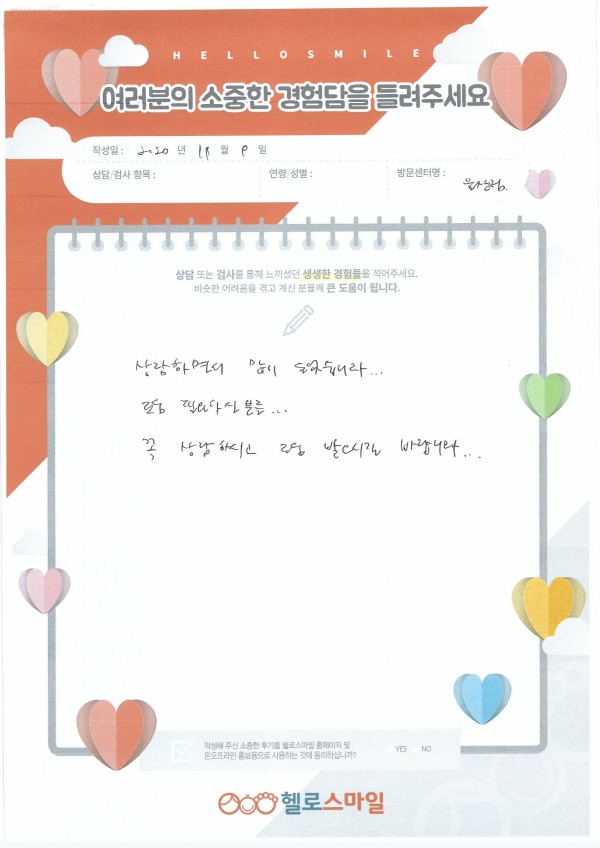 HELLOSMILE
여러분의 소중한 경험담을 들려주세요
작성일 : 2020 년 월 9 일
상담/검사 항목 :
연령/성별 :
방문센터명 :
상담 또는 검사를 통해 느끼셨던 생생한 경험들을 적어주세요.
비슷한 어려움을 겪고 계신 분들께 큰 도움이 됩니다.
상담하면서 많이 울었습니다...
도움 필요하신 분들...
꼭 상담하시고 도움 받으시길 바랍니다...
작성해 주신 소중한 후기를 헬로스마일 홈페이지 및
온오프라인 홍보용으로 사용하는 것에 동의하십니까?
YES NO
헬로스마일